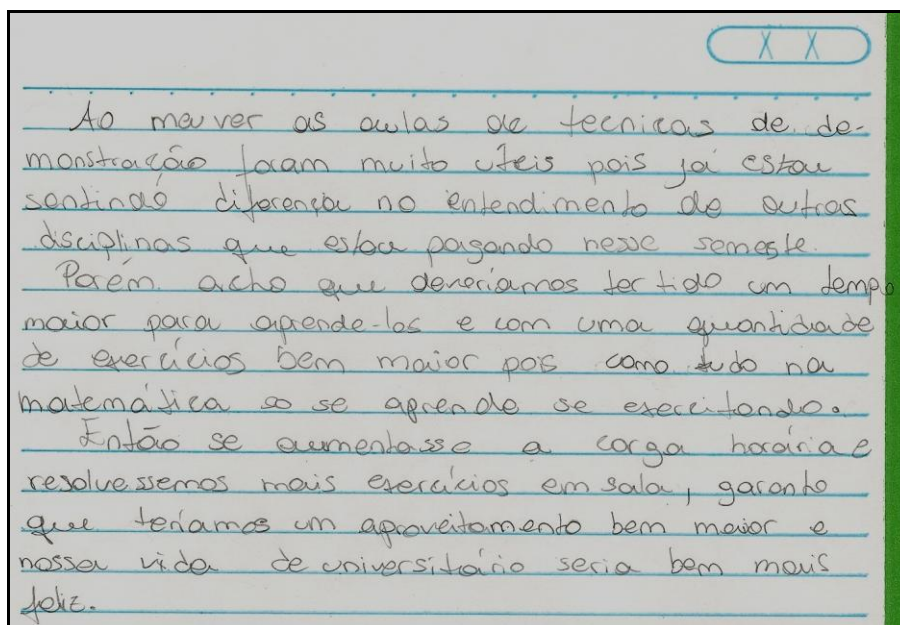 X X
Ao meu ver as aulas de tecnicas de de-
monstração foram muito uteis pois já estou
sentindo diferença no entendimento de outras
disciplinas que estou pagando nesse semeste.
Porém acho que deveríamos ter tido um tempo
maior para aprende-los e com uma quantidade
de exercícios bem maior pois como tudo na
matemática so se aprende se exercitando.
Então se aumentasse a carga horária e
resolvessemos mais exercícios em sala, garanto
que teríamos um aproveitamento bem maior e
nossa vida de universitário seria bem mais
feliz.